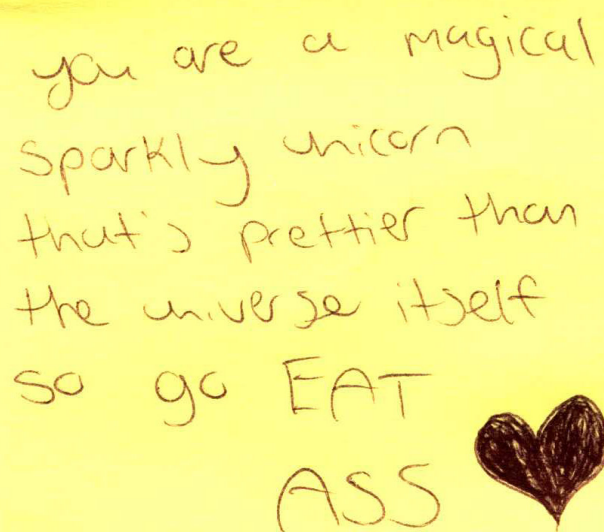 you are a magical
sparkly unicorn
that's prettier than
the universe itself
so go EAT
ASS